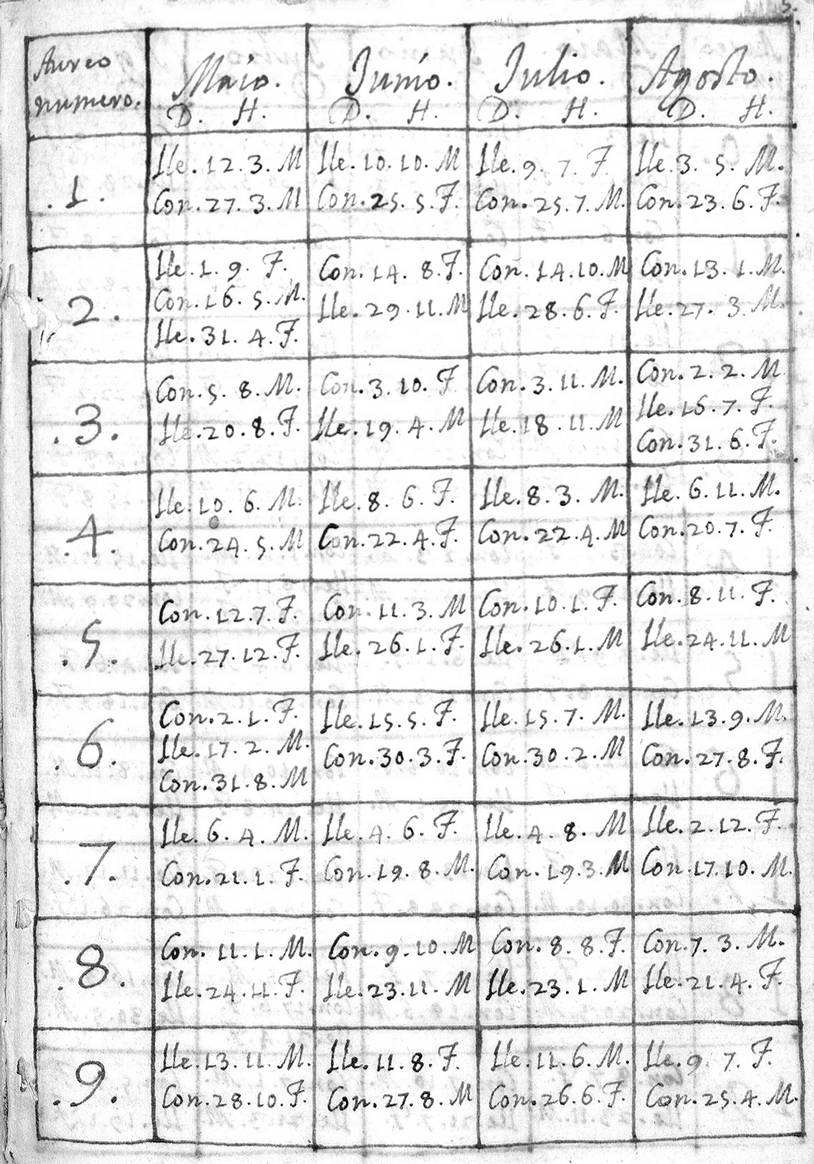 5.
Aureo numero. Maio. Junio. Julio. Agosto.
D. H. D. H. D. H. D. H.
.1. Lle.12.3.M Lle.10.10.M Lle.9.7.F Lle.3.5.M.
Con.27.3.M Con.25.5.F. Con.25.7.M. Con.23.6.F.
2. Lle.1.9.F. Con.14.8.F. Con.14.10.M Con.13.1.M.
Con.16.5.M. Lle.29.11.M Lle.28.6.F. Lle.27.3.M.
Lle.31.4.F.
.3. Con.5.8.M. Con.3.10.F Con.3.11.M. Con.2.2.M
Lle.20.8.F. Lle.19.4.M Lle.18.11.M Lle.15.7.F.
Con.31.6.F.
.4. Lle.10.6.M. Lle.8.6.F. Lle.8.3.M. Lle.6.11.M.
Con.24.5.M Con.22.4.F. Con.22.4.M Con.20.7.F.
.5. Con.12.7.F. Con.11.3.M Con.10.1.F. Con.8.11.F.
Lle.27.12.F. Lle.26.1.F. Lle.26.1.M Lle.24.11.M
6. Con.2.1.F. Lle.15.5.F. Lle.15.7.M. Lle.13.9.M.
Lle.17.2.M. Con.30.3.F. Con.30.2.M Con.27.8.F.
Con.31.8.M
.7. Lle.6.4.M. Lle.4.6.F. Lle.4.8.M Lle.2.12.F.
Con.21.1.F. Con.19.8.M. Con.19.3.M Con.17.10.M.
.8. Con.11.1.M. Con.9.10.M Con.8.8.F. Con.7.3.M.
Lle.24.11.F. Lle.23.11.M Lle.23.1.M Lle.21.4.F.
.9. Lle.13.11.M. Lle.11.8.F. Lle.11.6.M. Lle.9.7.F.
Con.28.10.F. Con.27.8.M Con.26.6.F. Con.25.4.M.